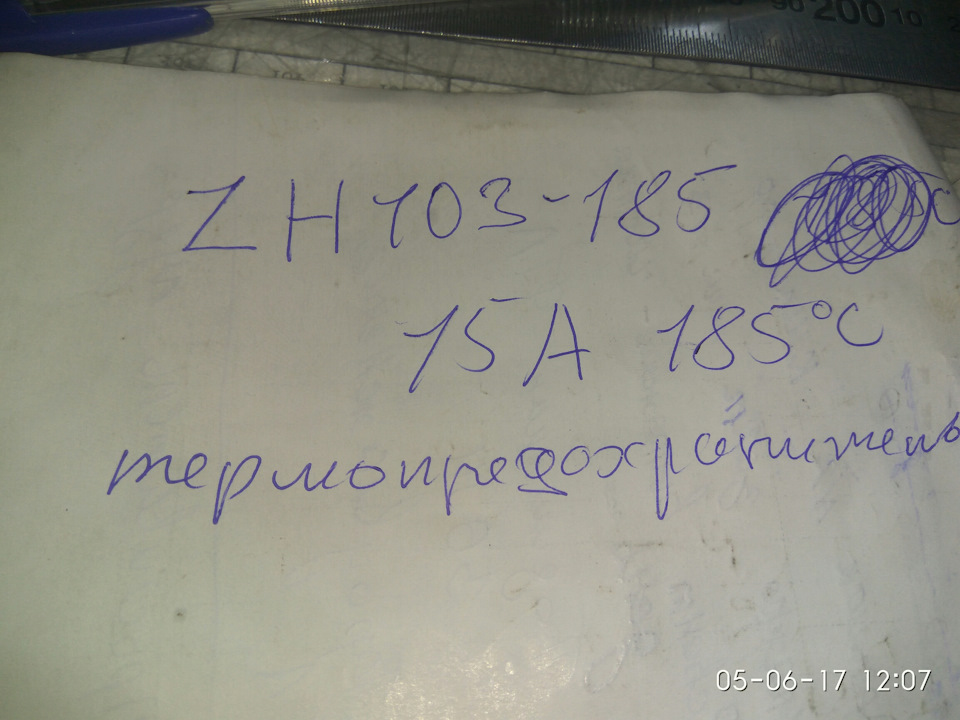 90 200 10
ZH103-185
15A 185°C
термопредохранитель
05-06-17 12:07